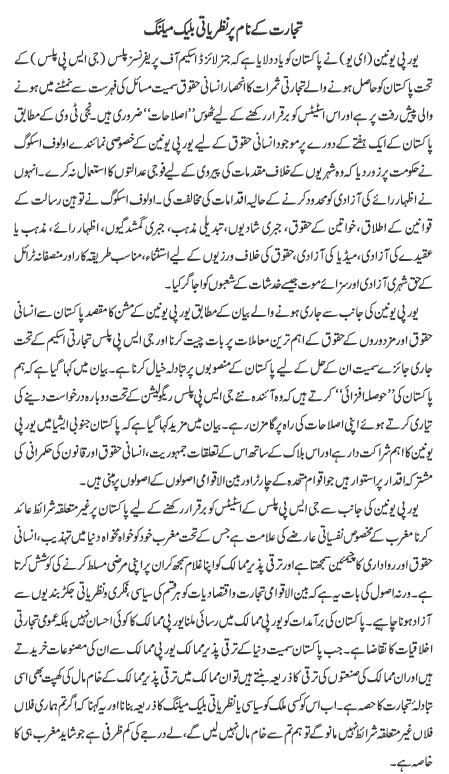 تجارت کے نام پر نظریاتی بلیک میلنگ
یورپی یونین (ای یو) نے پاکستان کو یاد دلایا ہے کہ جنرلائزڈ اسکیم آف پریفرنسز پلس (جی ایس پی پلس) کے
تحت پاکستان کو حاصل ہونے والے تجارتی ثمرات کا انحصار انسانی حقوق سمیت مسائل کی فہرست سے نمٹنے میں ہونے
والی پیش رفت پر ہے اور اس اسٹیٹس کو برقرار رکھنے کے لیے ٹھوس ’’اصلاحات‘‘ ضروری ہیں۔ نجی ٹی وی کے مطابق
پاکستان کے ایک ہفتے کے دورے پر موجود انسانی حقوق کے لیے یورپی یونین کے خصوصی نمائندے اولوف اسکوگ
نے حکومت پر زور دیا کہ وہ شہریوں کے خلاف مقدمات کی پیروی کے لیے فوجی عدالتوں کا استعمال نہ کرے۔ انہوں
نے اظہار رائے کی آزادی کو محدود کرنے کے حالیہ اقدامات کی مخالفت کی۔ اولوف اسکوگ نے توہین رسالت کے
قوانین کے اطلاق، خواتین کے حقوق، جبری شادیوں، تبدیلی مذہب، جبری گمشدگیوں، اظہار رائے، مذہب یا
عقیدے کی آزادی، میڈیا کی آزادی، حقوق کی خلاف ورزیوں کے لیے استثناء، مناسب طریقہ کار اور منصفانہ ٹرائل
کے حق شہری آزادی اور سزائے موت جیسے خدشات کے شعبوں کو اجاگر کیا۔
یورپی یونین کی جانب سے جاری ہونے والے بیان کے مطابق یورپی یونین کے مشن کا مقصد پاکستان سے انسانی
حقوق اور مزدوروں کے حقوق کے اہم ترین معاملات پر بات چیت کرنا اور جی ایس پی پلس تجارتی اسکیم کے تحت
جاری جائزے سمیت ان کے حل کے لیے پاکستان کے منصوبوں پر تبادلہ خیال کرنا ہے۔ بیان میں کہا گیا ہے کہ ہم
پاکستان کی ’’حوصلہ افزائی‘‘ کرتے ہیں کہ وہ آئندہ نئے جی ایس پی پلس ریگولیشن کے تحت دوبارہ درخواست دینے کی
تیاری کرتے ہوئے اپنی اصلاحات کی راہ پر گامزن رہے۔ بیان میں مزید کہا گیا ہے کہ پاکستان جنوبی ایشیا میں یورپی
یونین کا اہم شراکت دار ہے اور اس بلاک کے ساتھ اس کے تعلقات جمہوریت، انسانی حقوق اور قانون کی حکمرانی کی
مشترکہ اقدار پر استوار ہیں جو اقوام متحدہ کے چارٹر اور بین الاقوامی اصولوں کے اصولوں پر مبنی ہیں۔
یورپی یونین کی جانب سے جی ایس پی پلس کے اسٹیٹس کو برقرار رکھنے کے لیے پاکستان پر غیر متعلقہ شرائط عائد
کرنا مغرب کے مخصوص نفسیاتی عارضے کی علامت ہے جس کے تحت مغرب خود کو خواہ مخواہ دنیا میں تہذیب، انسانی
حقوق اور رواداری کا چیمپئین سمجھتا ہے اور ترقی پذیر ممالک کو اپنا غلام سمجھ کر ان پر اپنی مرضی مسلط کرنے کی کوشش کرتا
ہے۔ ورنہ اصول کی بات یہ ہے کہ بین الاقوامی تجارت و اقتصادیات کو ہر قسم کی سیاسی، فکری و نظریاتی جکڑ بندیوں سے
آزاد ہونا چاہیے۔ پاکستان کی برآمدات کو یورپی ممالک میں رسائی ملنا یورپی ممالک کا کوئی احسان نہیں بلکہ عمومی تجارتی
اخلاقیات کا تقاضا ہے۔ جب پاکستان سمیت دنیا کے ترقی پذیر ممالک یورپی ممالک سے ان کی مصنوعات خریدتے
ہیں اور ان ممالک کی صنعتوں کی ترقی کا ذریعہ بنتے ہیں تو ان ممالک میں ترقی پذیر ممالک کے خام مال کی کھپت بھی اسی
تبادلہ تجارت کا حصہ ہے۔ اب اس کو کسی ملک کو سیاسی یا نظریاتی بلیک میلنگ کا ذریعہ بنانا اور یہ کہنا کہ اگر تم ہماری فلاں
فلاں غیر متعلقہ شرائط نہیں مانو گے تو ہم تم سے خام مال نہیں لیں گے، پلے درجے کی کم ظرفی ہے جو شاید مغرب ہی کا
خاصہ ہے۔